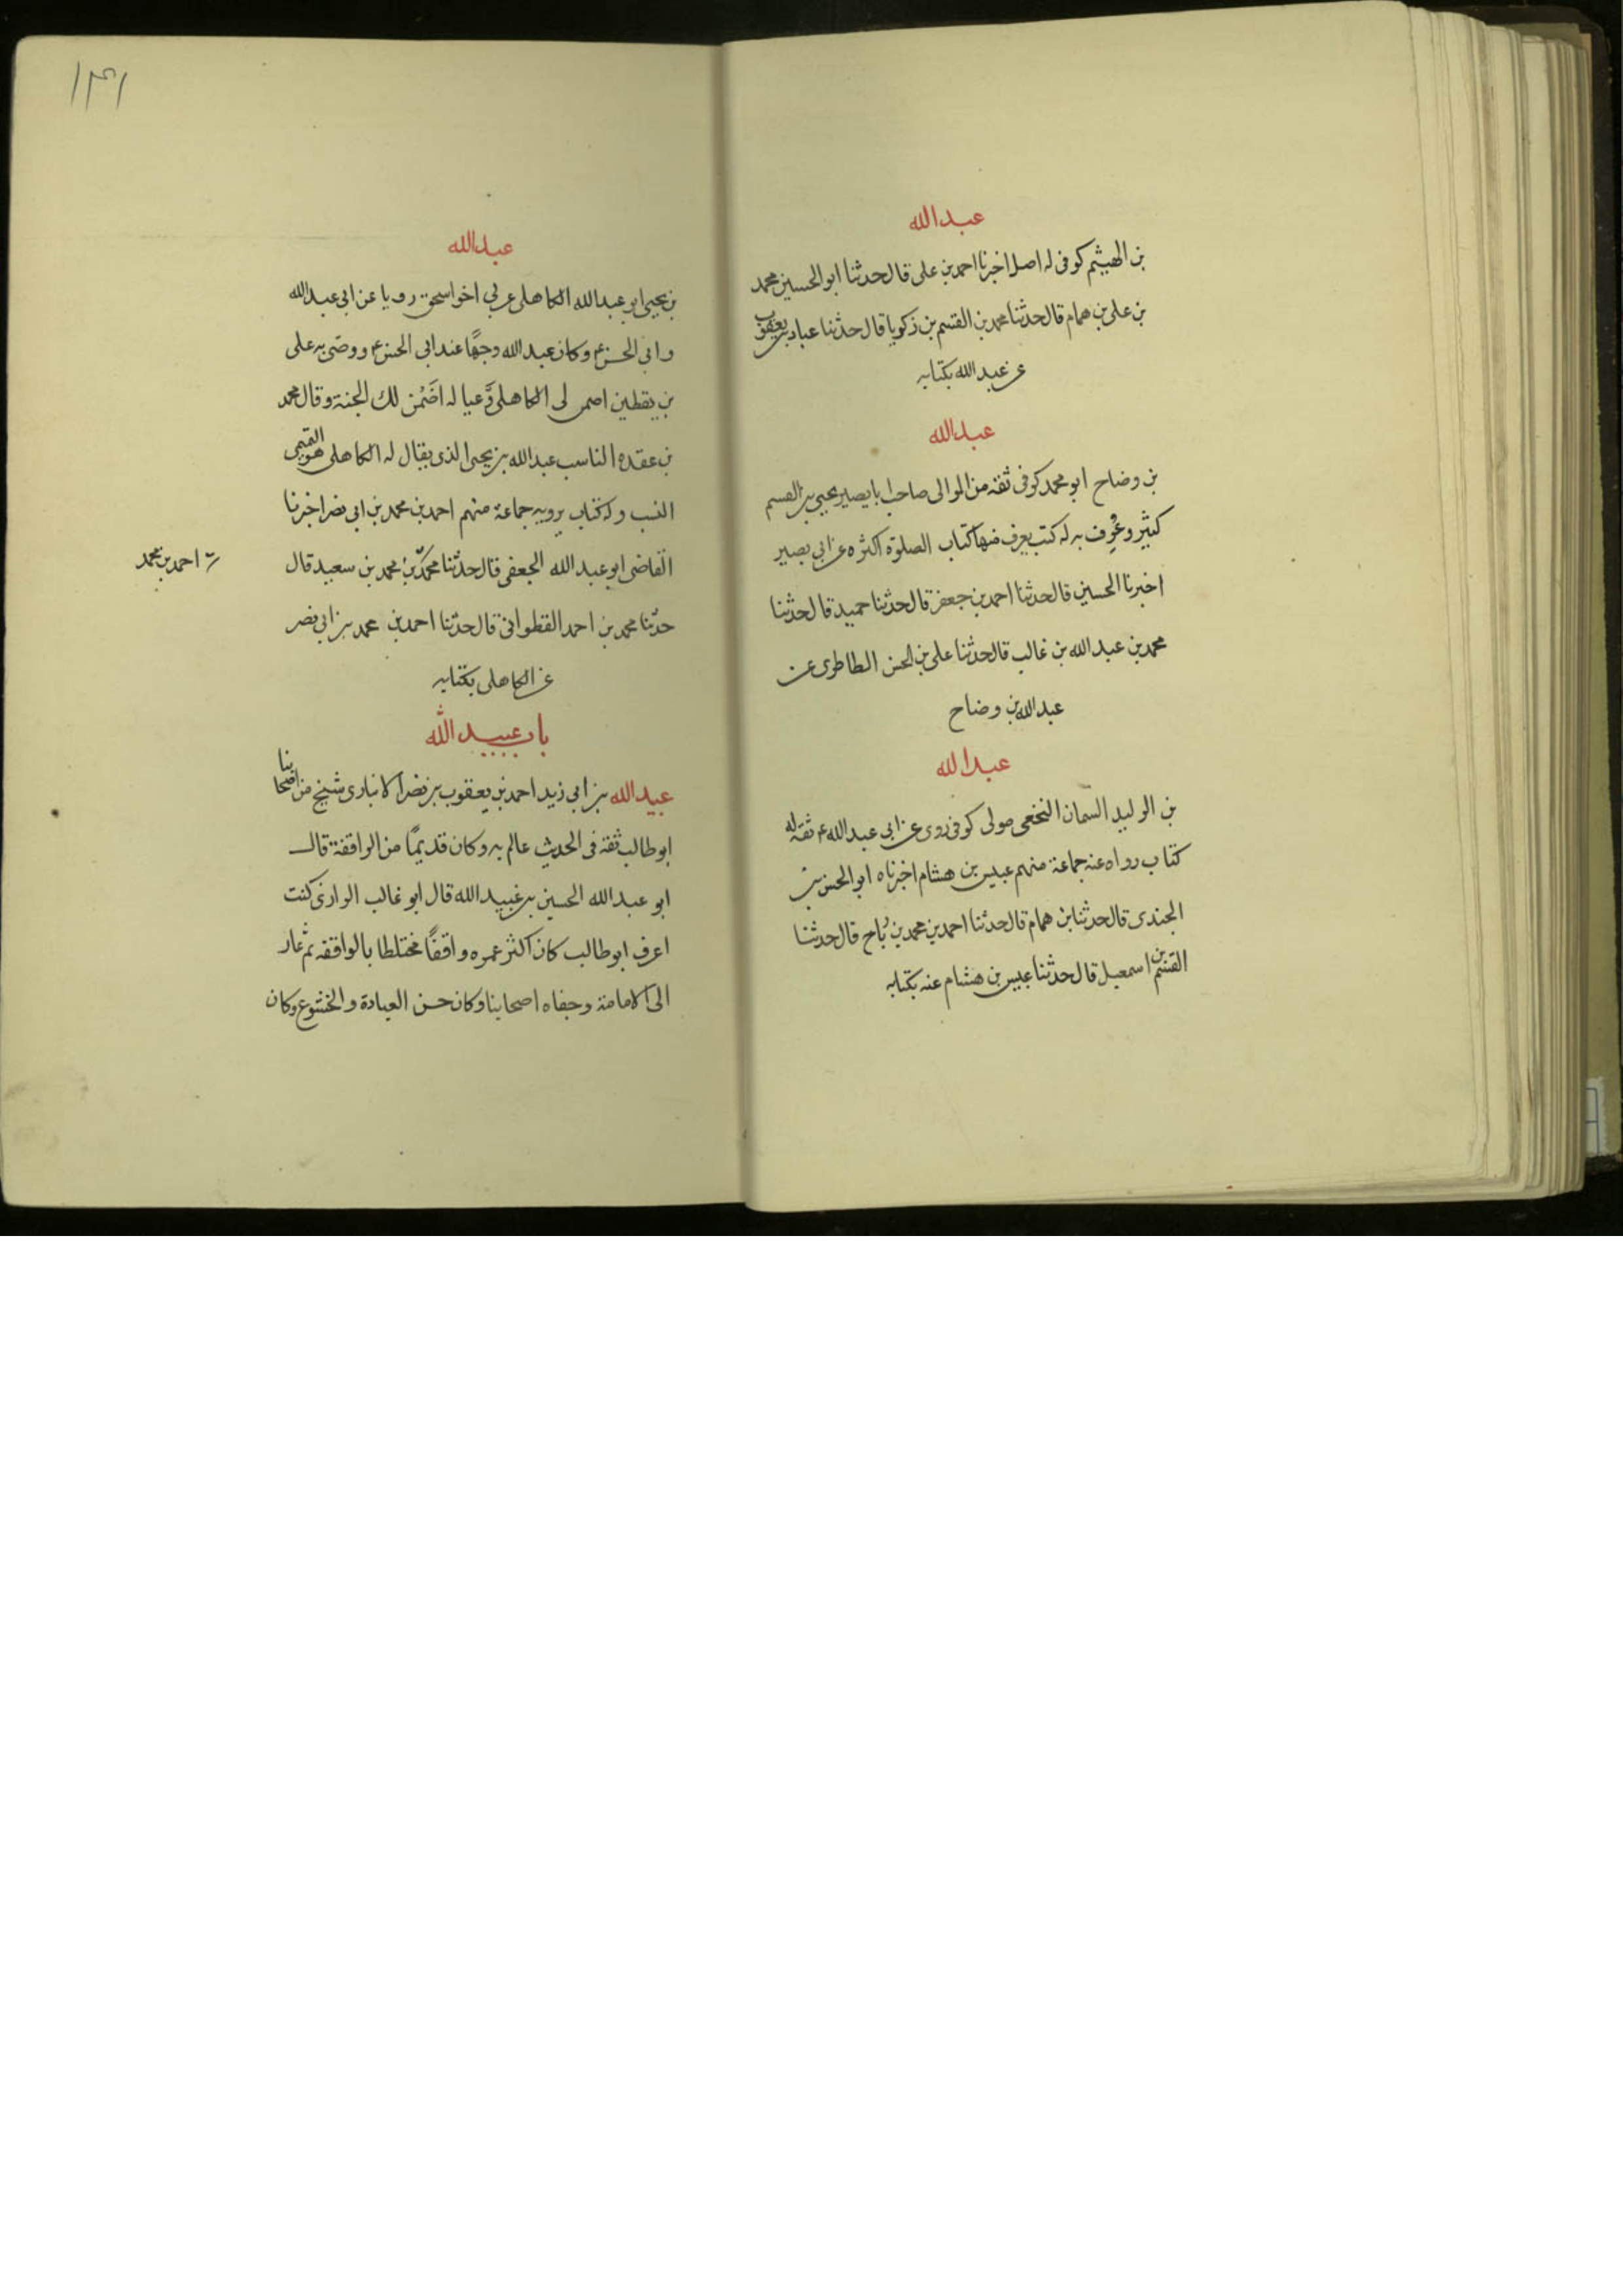 عبدالله
بن الهيثم كوفى له اصل اخبرنا احمد بن على قال حدثنا ابو الحسين محمد
بن على بن همام قال حدثنا محمد بن القسم بن زكويا قال حدثنا عباد بن يعقوب
عن عبدالله بكتابه
عبدالله
بن وضاح ابو محمد كوفى ثقه من الموالى صاحب ابا بصير يحيى بن القسم
كثير وعُرِف به له كتب يعرف منها كتاب الصلوة اكثره عن ابى بصير
اخبرنا الحسين قال حدثنا احمد بن جعفر قال حدثنا حميد قال حدثنا
محمد بن عبدالله بن غالب قال حدثنا على بن الحسن الطاطرى عن
عبدالله بن وضاح
عبدالله
بن الوليد السمان النخعى مولى كوفى روى عن ابى عبدالله ع ثقه له
كتاب رواه عنه جماعة منهم عبيس بن هشام اخبرناه ابو الحسن بن
الجندى قال حدثنا بن همام قال حدثنا احمد بن محمد بن رباح قال حدثنا
القسم بن اسمعيل قال حدثنا عبيس بن هشام عنه بكتابه
١٣١
عبدالله
بن يحيى ابو عبدالله الكاهلى عربى اخو اسحق رويا عن ابى عبدالله
وابى الحسن ع وكان عبدالله وجهًا عند ابى الحسن ع ووصّى به على
بن يقطين اضمن لى الكاهلى وَعياله اضَمْن لك الجنة وقال محمد
بن عقده الناسب عبدالله بن يحيى الذى يقال له الكاهلى هو التميمى
النسب وله كتاب يرويه جماعة منهم احمد بن محمد بن ابى نصر اخبرنا
القاضى ابو عبدالله الجعفى قال حدثنا محمد بن محمد بن سعيد قال
احمد بن محمد
حدثنا محمد بن احمد القطوانى قال حدثنا احمد بن محمد بن ابى نصر
عن الكاهلى بكتابه
باب عبيد الله
عبيد الله بن ابى زيد احمد بن يعقوب بن نصر الانبارى شيخ من اصحابنا
ابو طالب ثقة فى الحديث عالم به وكان قديمًا من الواقفة قال
ابو عبدالله الحسين بن عبيد الله قال ابو غالب الزرارى كنت
اعرف ابو طالب كان اكثر عمره واقفًا مختلطا بالواقفه ثم عاد
الى الامامة وجفاه اصحابنا وكان حسن العبادة والخشوع وكان